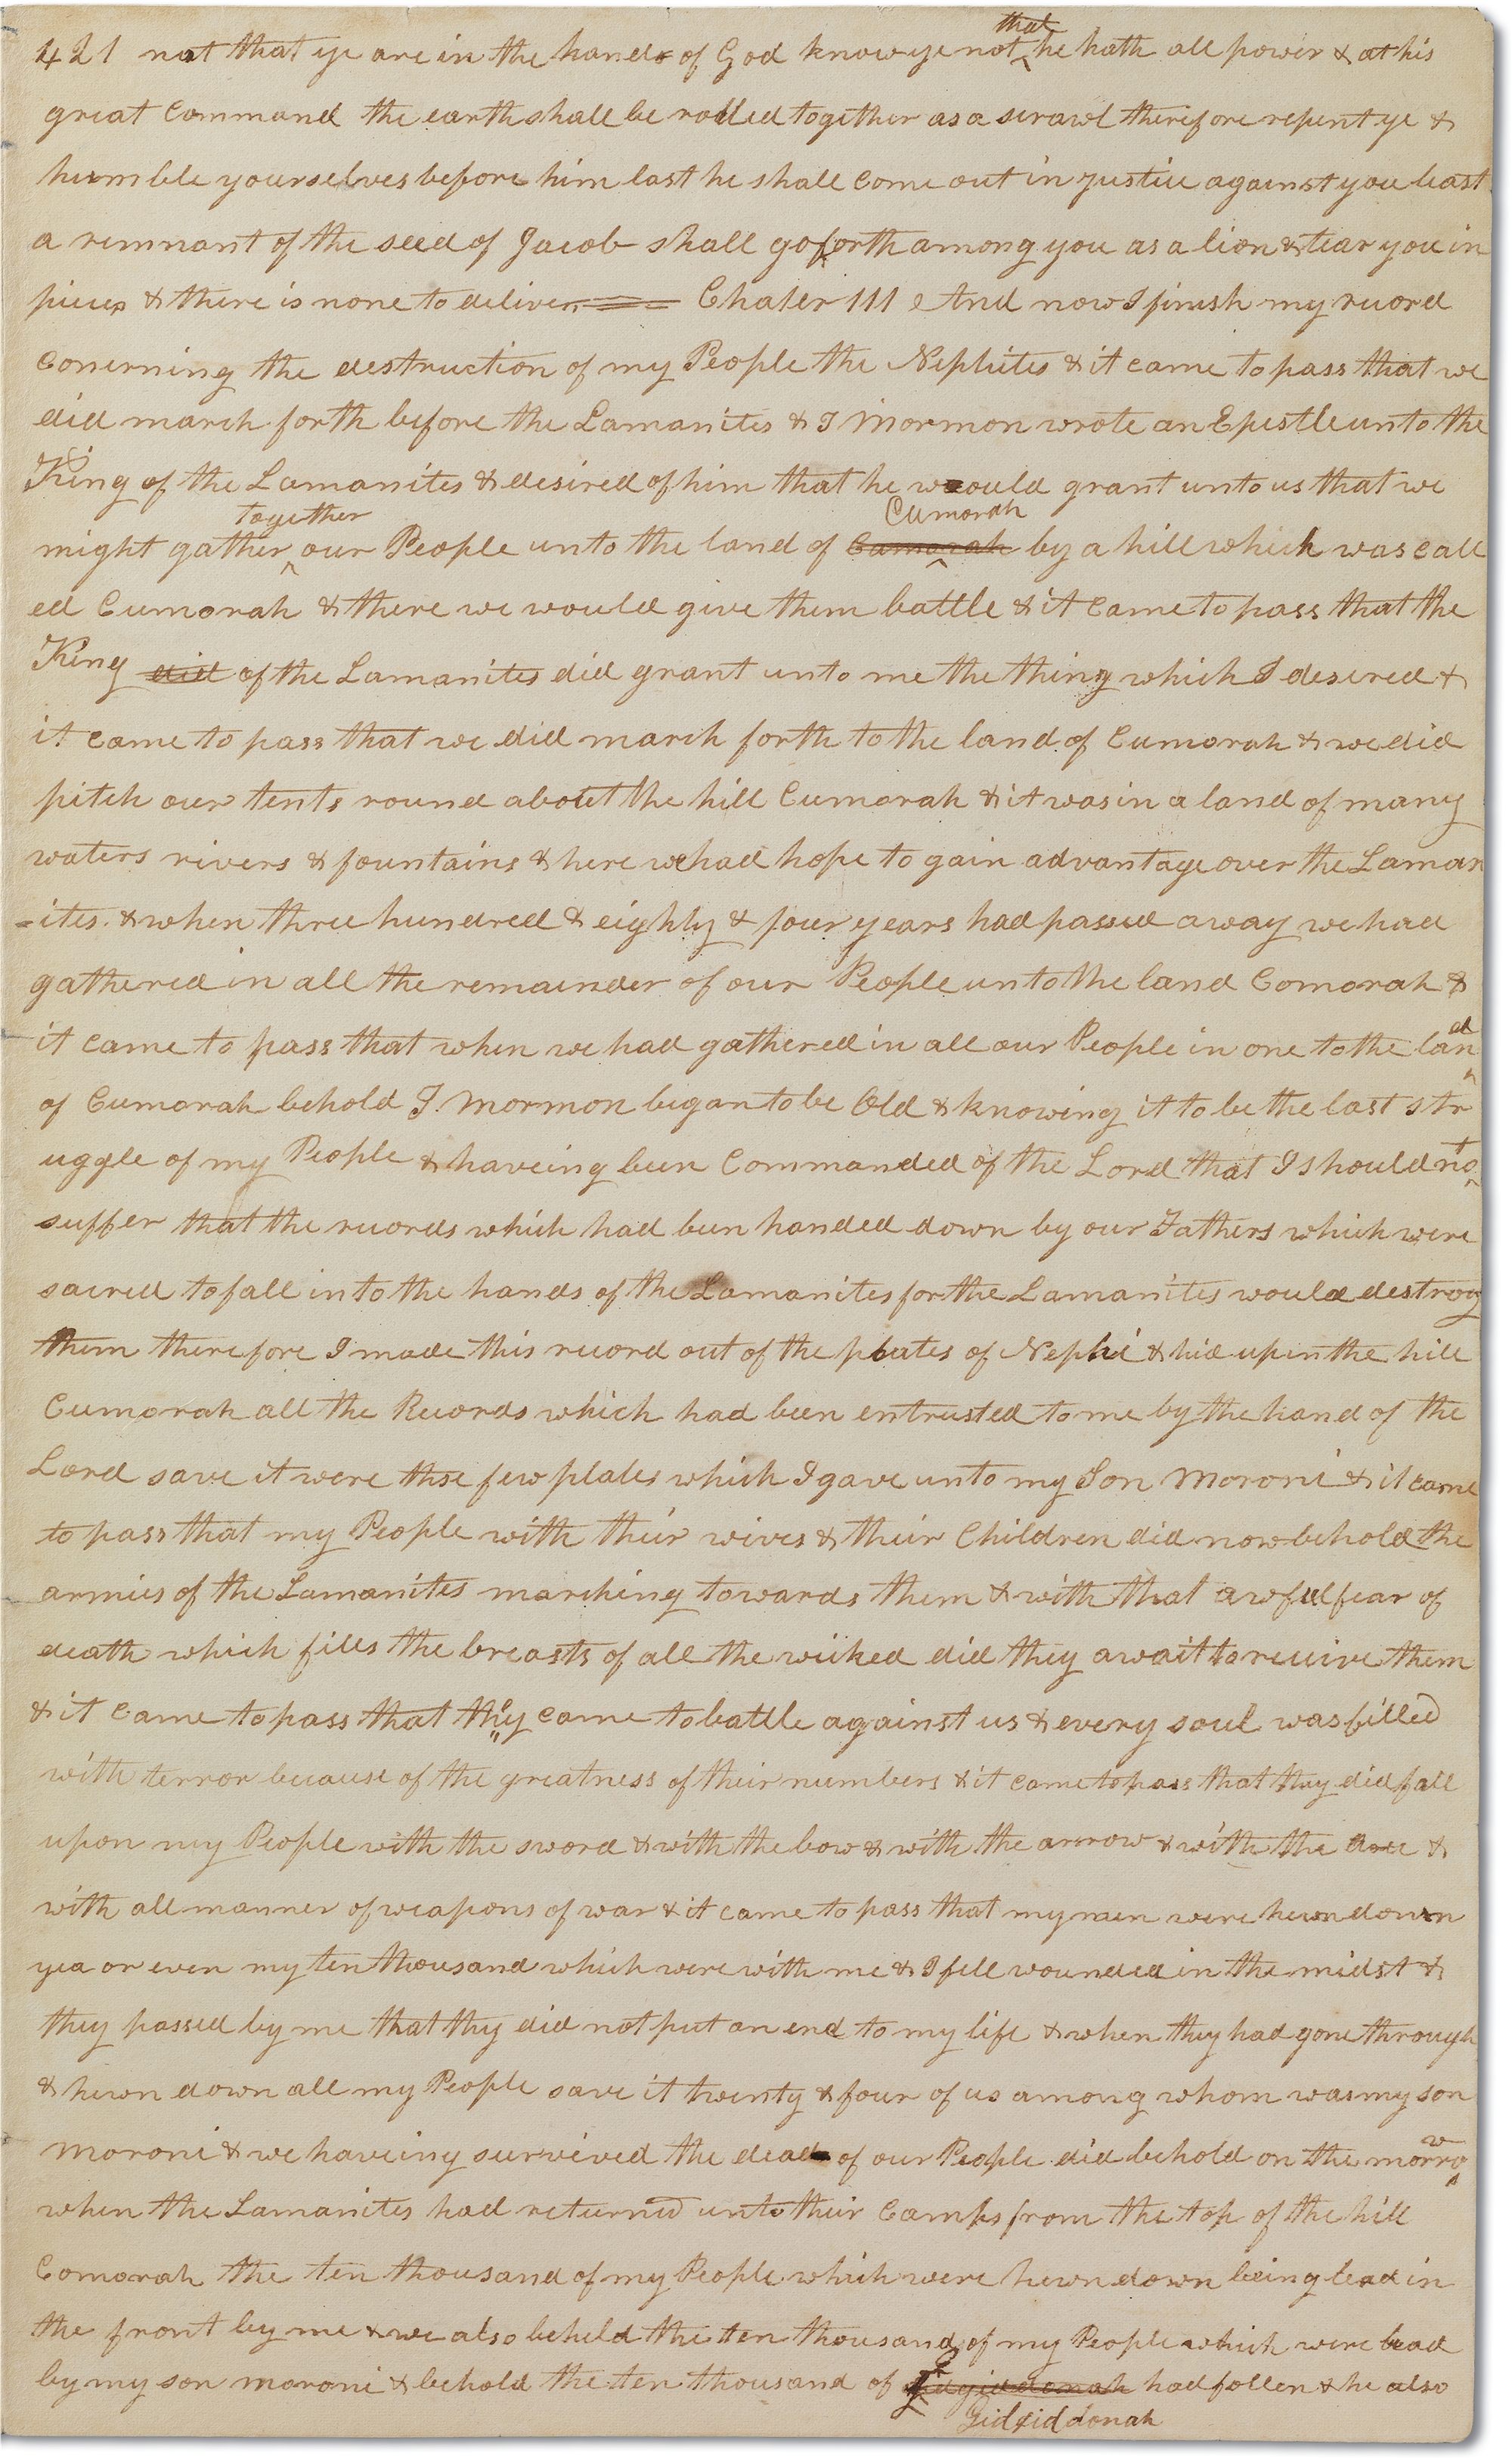 421 not that ye are in the hands of God know ye not that he hath all power & at his
great Command the earth shall be rolled together as a scrawl therefore repent ye &
humble yourselves before him last he shall come out in justice against you least
a remnant of the seed of Jacob shall go forth among you as a lion & tear you in
pieces & there is none to deliver Chater 111 And now I finish my record
Conerning the destruction of my People the Nephites & it came to pass that we
did march forth before the Lamanites & I Mormon wrote an Epistle unto the
King of the Lamanites & desired of him that he would grant unto us that we
might gather together our People unto the land of Camorah Cumorah by a hill which was call
ed Cumorah & there we would give them battle & it came to pass that the
King did of the Lamanites did grant unto me the thing which I desired &
it came to pass that we did march forth to the land of Cumorah & we did
pitch our tents round about the hill Cumorah & it was in a land of many
waters rivers & fountains & here we had hope to gain advantage over the Laman
-ites & when three hundred & eighty & four years had passed away we had
gathered in all the remainder of our People unto the land Comorah &
it came to pass that when we had gathered in all our People in one to the land
of Cumorah behold I Mormon began to be Old & knowing it to be the last str
uggle of my People & haveing been Commanded of the Lord that I should not
suffer that the records which had been handed down by our Fathers which were
sacred to fall into the hands of the Lamanites for the Lamanites would destroy
them therefore I made this record out of the plates of Nephi & hid up in the hill
Cumorah all the Records which had been entrusted to me by the hand of the
Lord save it were thse few plates which I gave unto my Son Moroni & it came
to pass that my People with their wives & their Children did now behold the
armies of the Lamanites marching towards them & with that awful fear of
death which fills the breasts of all the wicked did they await to receive them
& it came to pass that they came to battle against us & every soul was filled
with terror because of the greatness of their numbers & it came to pass that they did fall
upon my People with the sword & with the bow & with the arrow & with the axe &
with all manner of weapons of war & it came to pass that my men were hewn down
yea or even my ten thousand which were with me & I fell wounded in the midst &
they passed by me that they did not put an end to my life & when they had gone through
& hewn down all my People save it twenty & four of us among whom was my son
Moroni & we haveing survived the dead of our People did behold on the morrow
when the Lamanites had returned unto their Camps from the top of the hill
Comorah the ten thousand of my People which were hewn down being lead in
the front by me & we also beheld the ten thousand of my People which were lead
by my son moroni & behold the ten thousand of Gidgiddonah had fallen & he also
Gidgiddonah